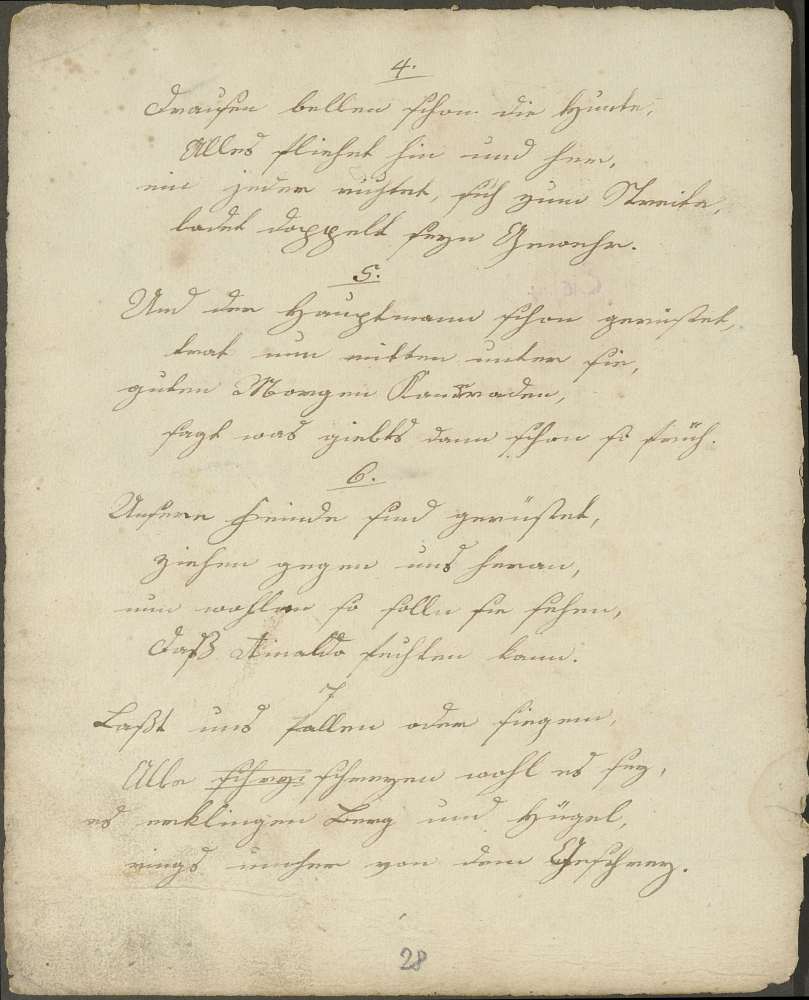 4.
Drausen bellen schon die Hunte,
Alles fliehet hin und her,
ein jeder richtet, sich zum Streite,
ladet doppelt seyn Gewehr.
5.
Und der Hauptmann schon gerüstet,
trat nun mitten unter sie,
guten Morgen Kamraden,
sagt was giebts dann schon so früh.
6.
Unsere Feinde sind gerüstet,
ziehen gegen uns heran,
nun wohlan so solln sie sehen,
daß Rinaldo fechten kann.
7
Laßt uns fallen oder siegen,
Alle schreyen wohl es sey,
es erklingen Berg und Hügel,
rings umher von dem Geschrey.
28